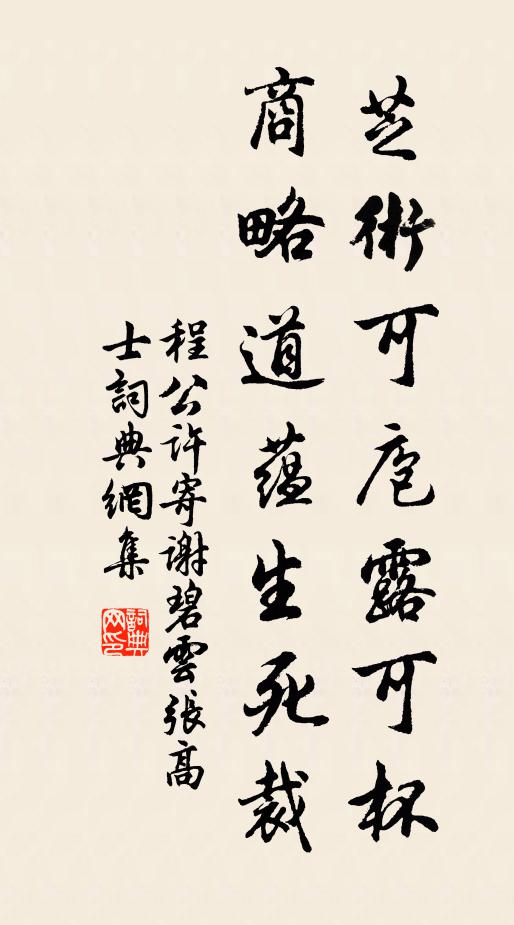 芝術可庖露可杯
商略道蘊生死裁
程公許寄謝碧雲張高
士詞典網集
詞典網印